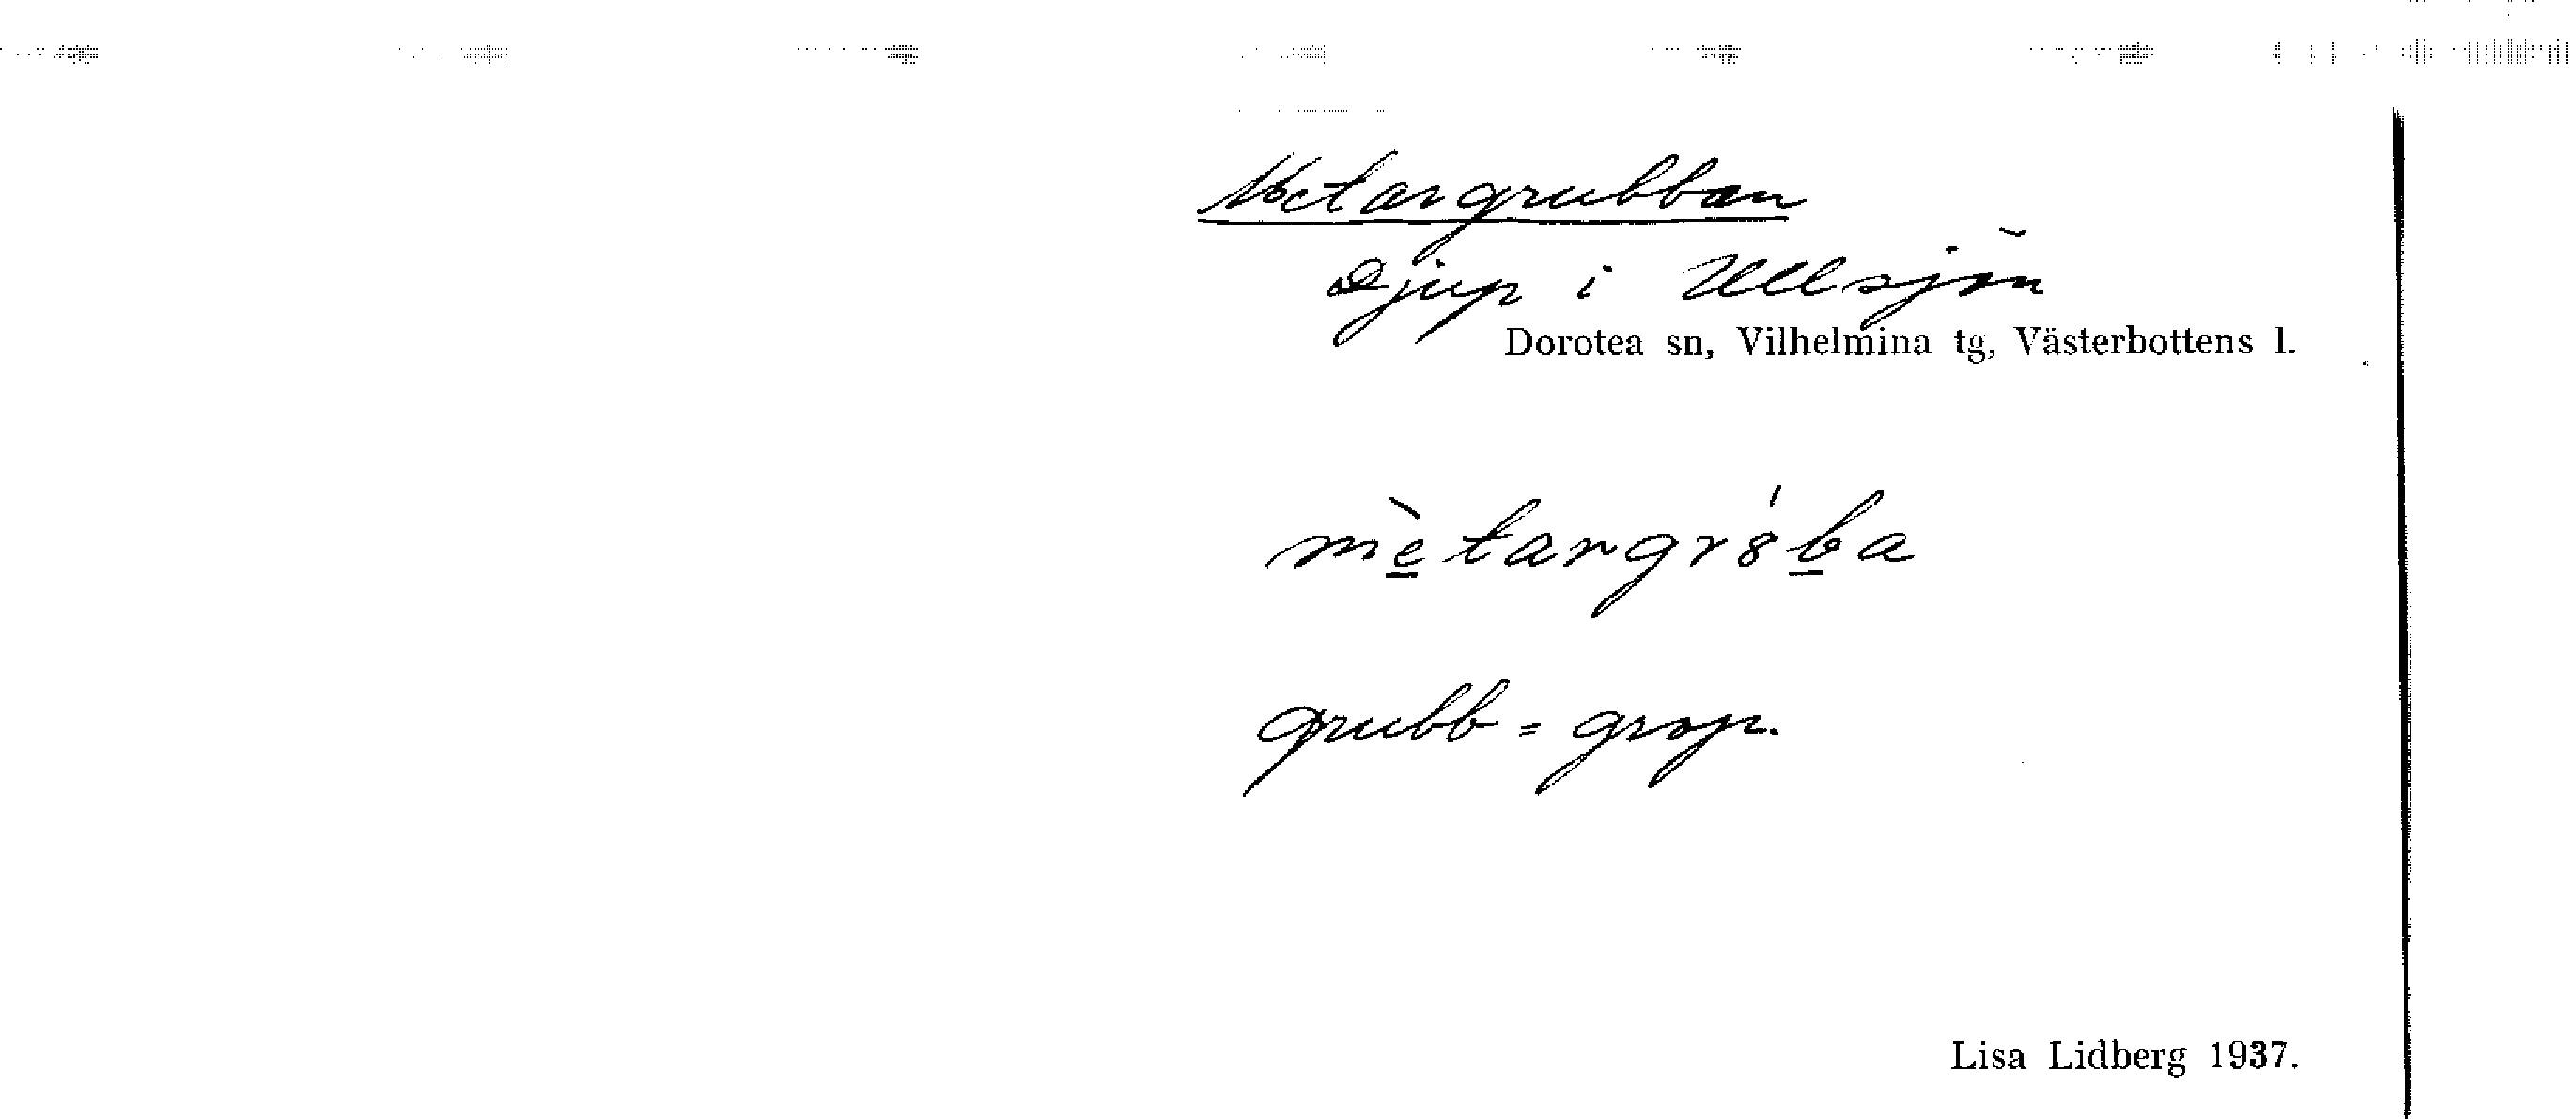 Metargrubban
Djup i Ullsjön
Dorotea sn, Vilhelmina tg, Västerbottens l.
mètargr8́ba
grubb = grop.
Lisa Lidberg 1937.